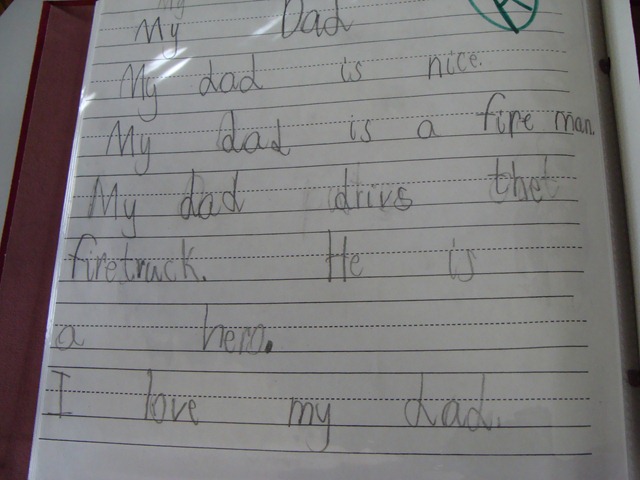 My Dad
My dad is nice.
My dad is a fire man.
My dad drivs the
firetruck. He is
a hero.
I love my dad.